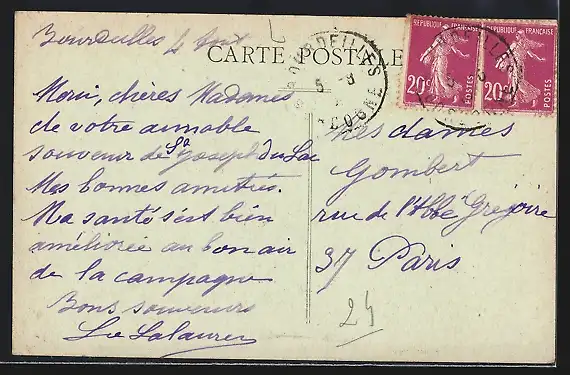 Bourdeilles 4 Aout
CARTE POSTALE
BOURDEILLES
5 -8
DOGNE
REPUBLIQUE FRANÇAISE
20c POSTES
REPUBLIQUE FRANÇAISE
20c POSTES
Merci, chères Madames
de votre aimable
souvenir de St Joseph du Lac
Mes bonnes amitiés.
Ma santé s'est bien
améliorée au bon air
de la campagne
Bons souvenirs
Mesdames
Gombert
rue de l'Abbé Grégoire
37 Paris
24